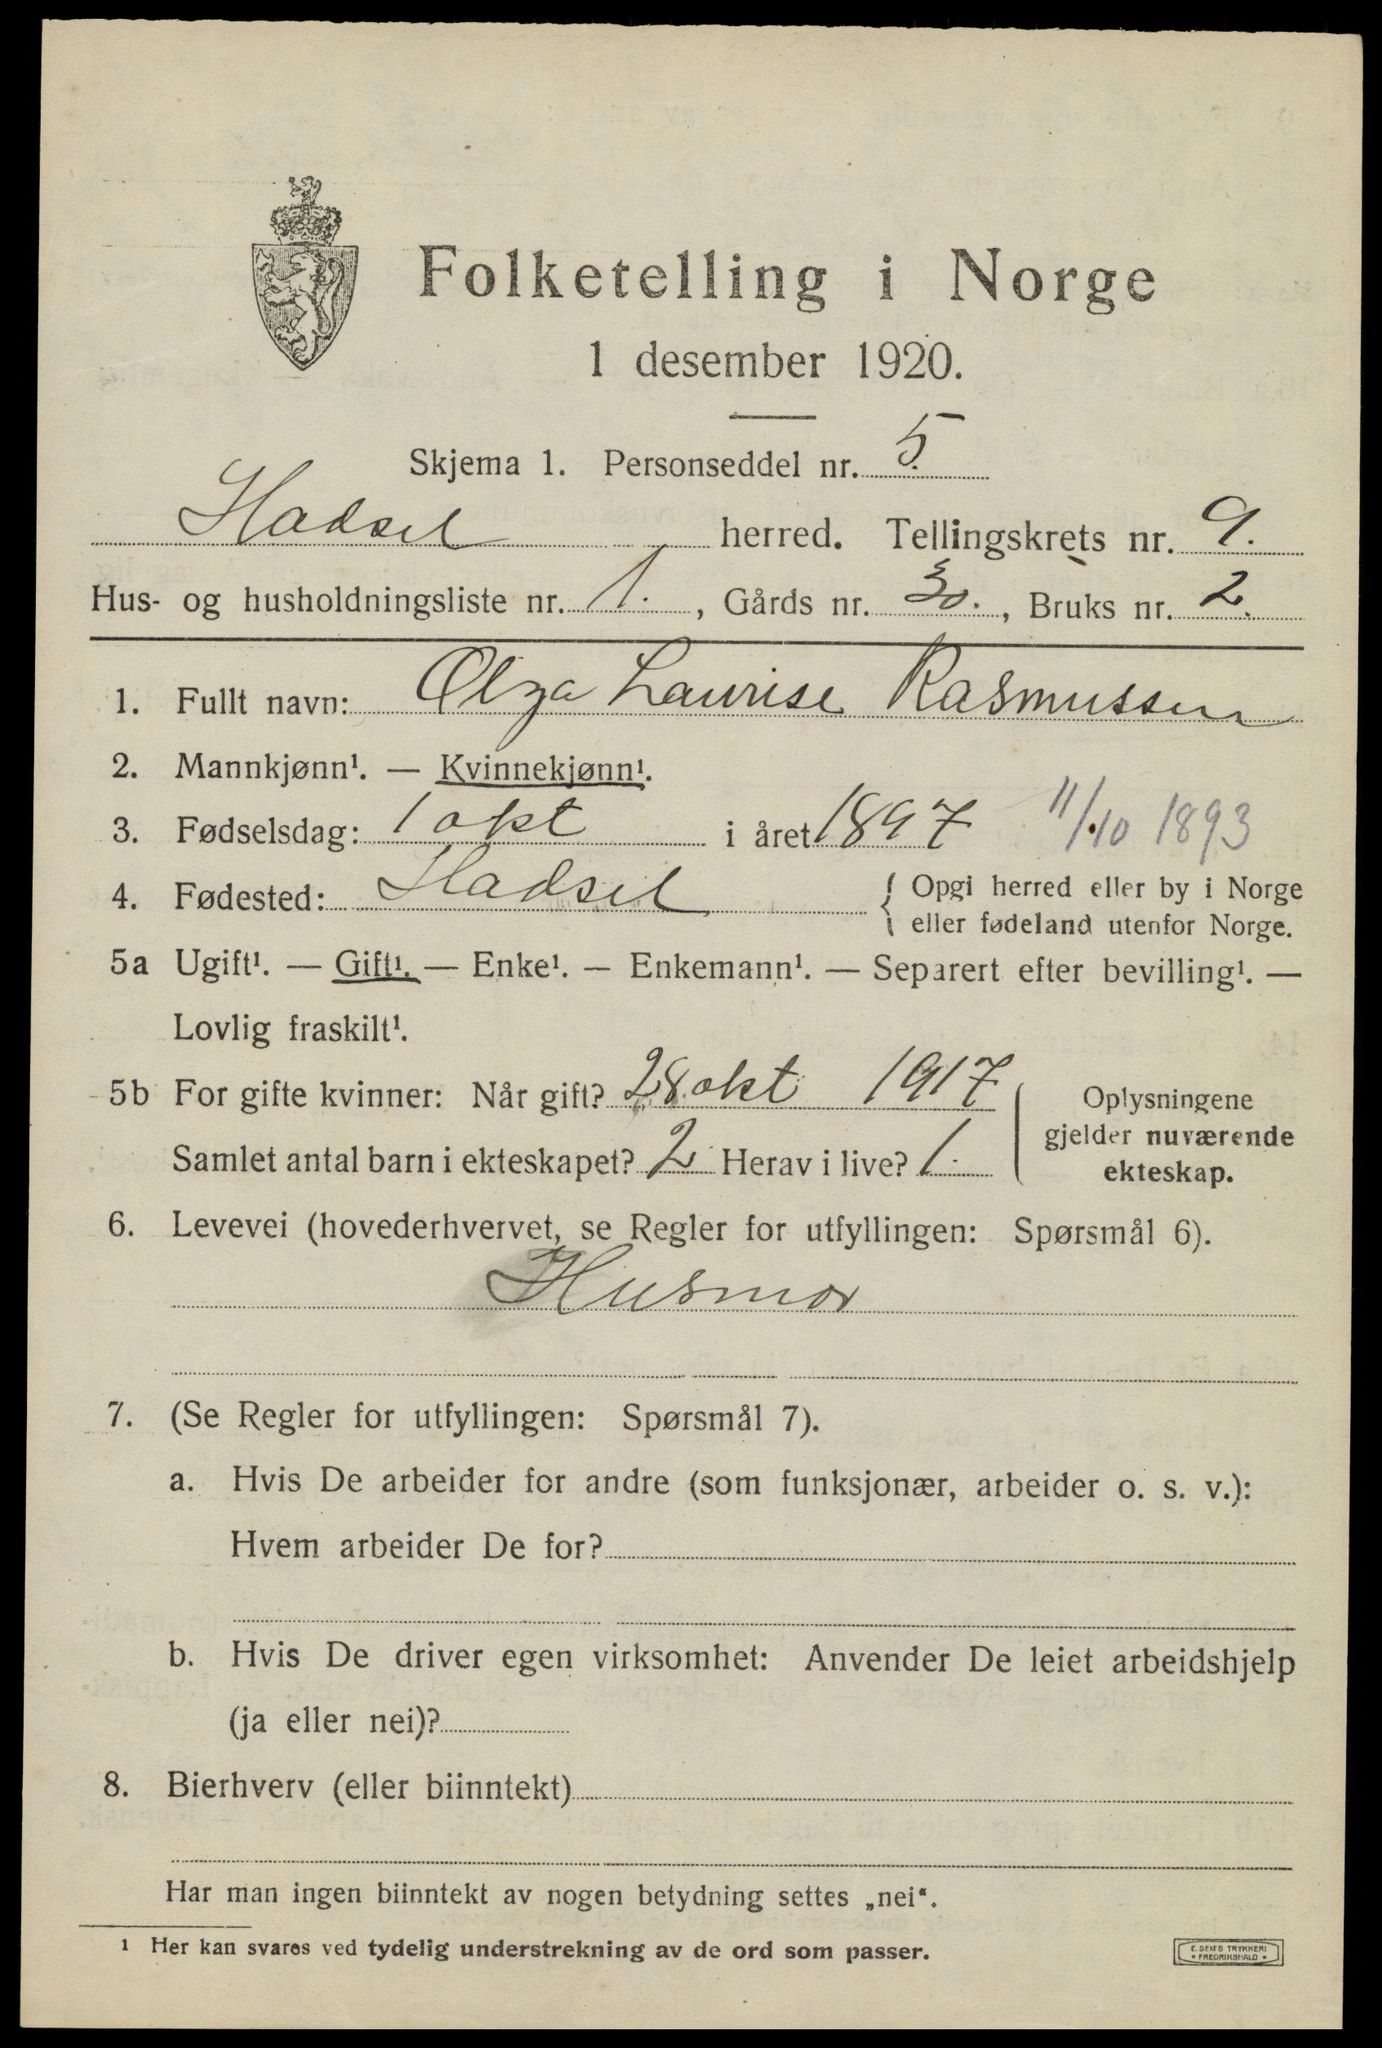 Folketelling i Norge
1 desember 1920.
Skjema 1. Personseddel nr. 5.
Hadsel herred. Tellingskrets nr. 9.
Hus- og husholdningsliste nr. 1., Gårds nr. 30., Bruks nr. 2.
1. Fullt navn: Olga Laurise Rasmussen
2. Mannkjønn¹. — Kvinnekjønn¹.
3. Fødselsdag: 1 okt i året 1897 11/10 1893
4. Fødested: Hadsel { Opgi herred eller by i Norge
eller fødeland utenfor Norge.
5a Ugift¹. — Gift¹. — Enke¹. — Enkemann¹. — Separert efter bevilling¹. —
Lovlig fraskilt¹.
5b For gifte kvinner: Når gift? 28 okt 1917
Samlet antal barn i ekteskapet? 2 Herav i live? 1.
Oplysningene
gjelder nuværende
ekteskap.
6. Levevei (hovederhvervet, se Regler for utfyllingen: Spørsmål 6).
Husmor
7. (Se Regler for utfyllingen: Spørsmål 7).
a. Hvis De arbeider for andre (som funksjonær, arbeider o. s. v.):
Hvem arbeider De for?
b. Hvis De driver egen virksomhet: Anvender De leiet arbeidshjelp
(ja eller nei)?
8. Bierhverv (eller biinntekt)
Har man ingen biinntekt av nogen betydning settes „nei“.
¹ Her kan svares ved tydelig understrekning av de ord som passer.
E. SEM'S TRYKKERI
• FREDRIKSHALD •